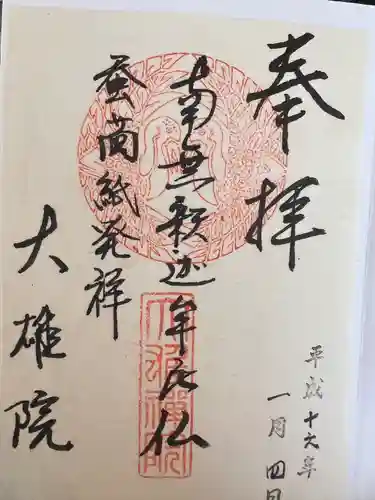 奉拝
平成十六年
一月四日
南無釈迦牟尼仏
蚕繭紙発祥
大雄院
大雄禅院